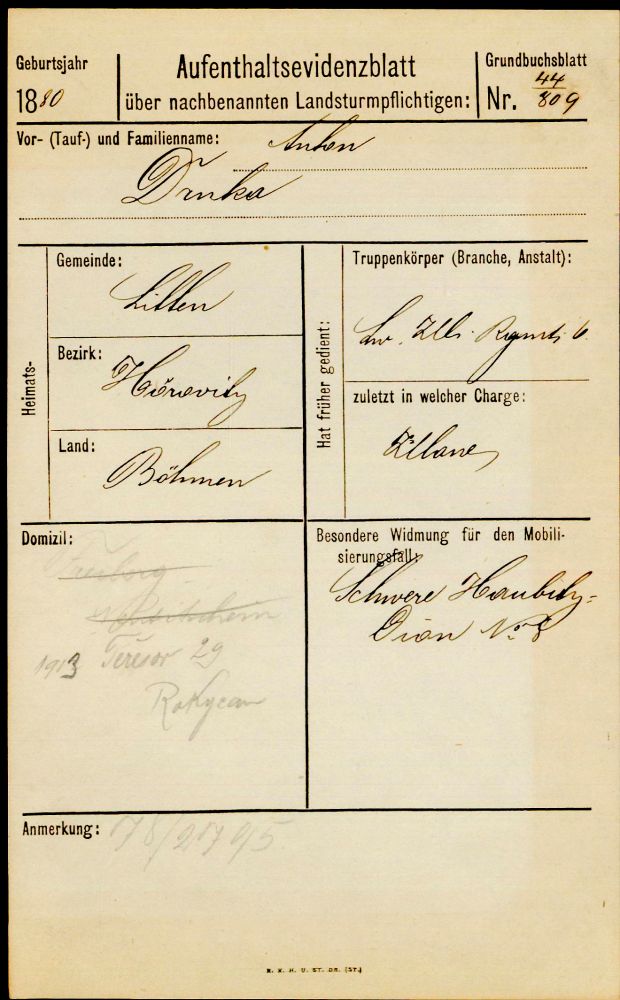 Geburtsjahr
1880
Aufenthaltsevidenzblatt
über nachbenannten Landsturmpflichtigen:
Grundbuchsblatt
Nr. 44/809
Vor- (Tauf-) und Familienname: Anton
Drnka
Heimats-
Gemeinde:
Litten
Bezirk:
Hořovitz
Land:
Böhmen
Hat früher gedient:
Truppenkörper (Branche, Anstalt):
Lw. Uhl. Rgmt. 6
zuletzt in welcher Charge:
Uhlane
Domizil:
1913 Terešov 29
Rokycan
Besondere Widmung für den Mobili-
sierungsfall:
Schwere Haubitz-
Dion No 8
Anmerkung:
K. K. H. U. ST. DR. (ST.)